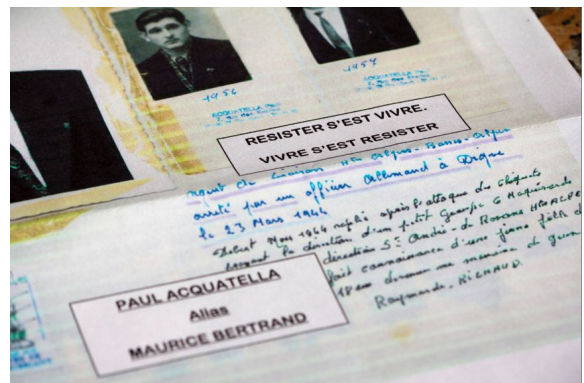 1956
1957
RESISTER S'EST VIVRE.
VIVRE S'EST RESISTER
agent de Liaison Htes Alpes-Basses-Alpes
arrêté par un officier allemand à Digne
le 23 Mars 1944
Début Mars 1944 replié après l'attaque des
prenant la direction d'un petit Groupe 6 Maquisards
direction St André-de Rosans Htes ALPES
fait connaissance d'une jeune fille de
18 ans
Raymonde. RICHAUD
PAUL ACQUATELLA
Alias
MAURICE BERTRAND